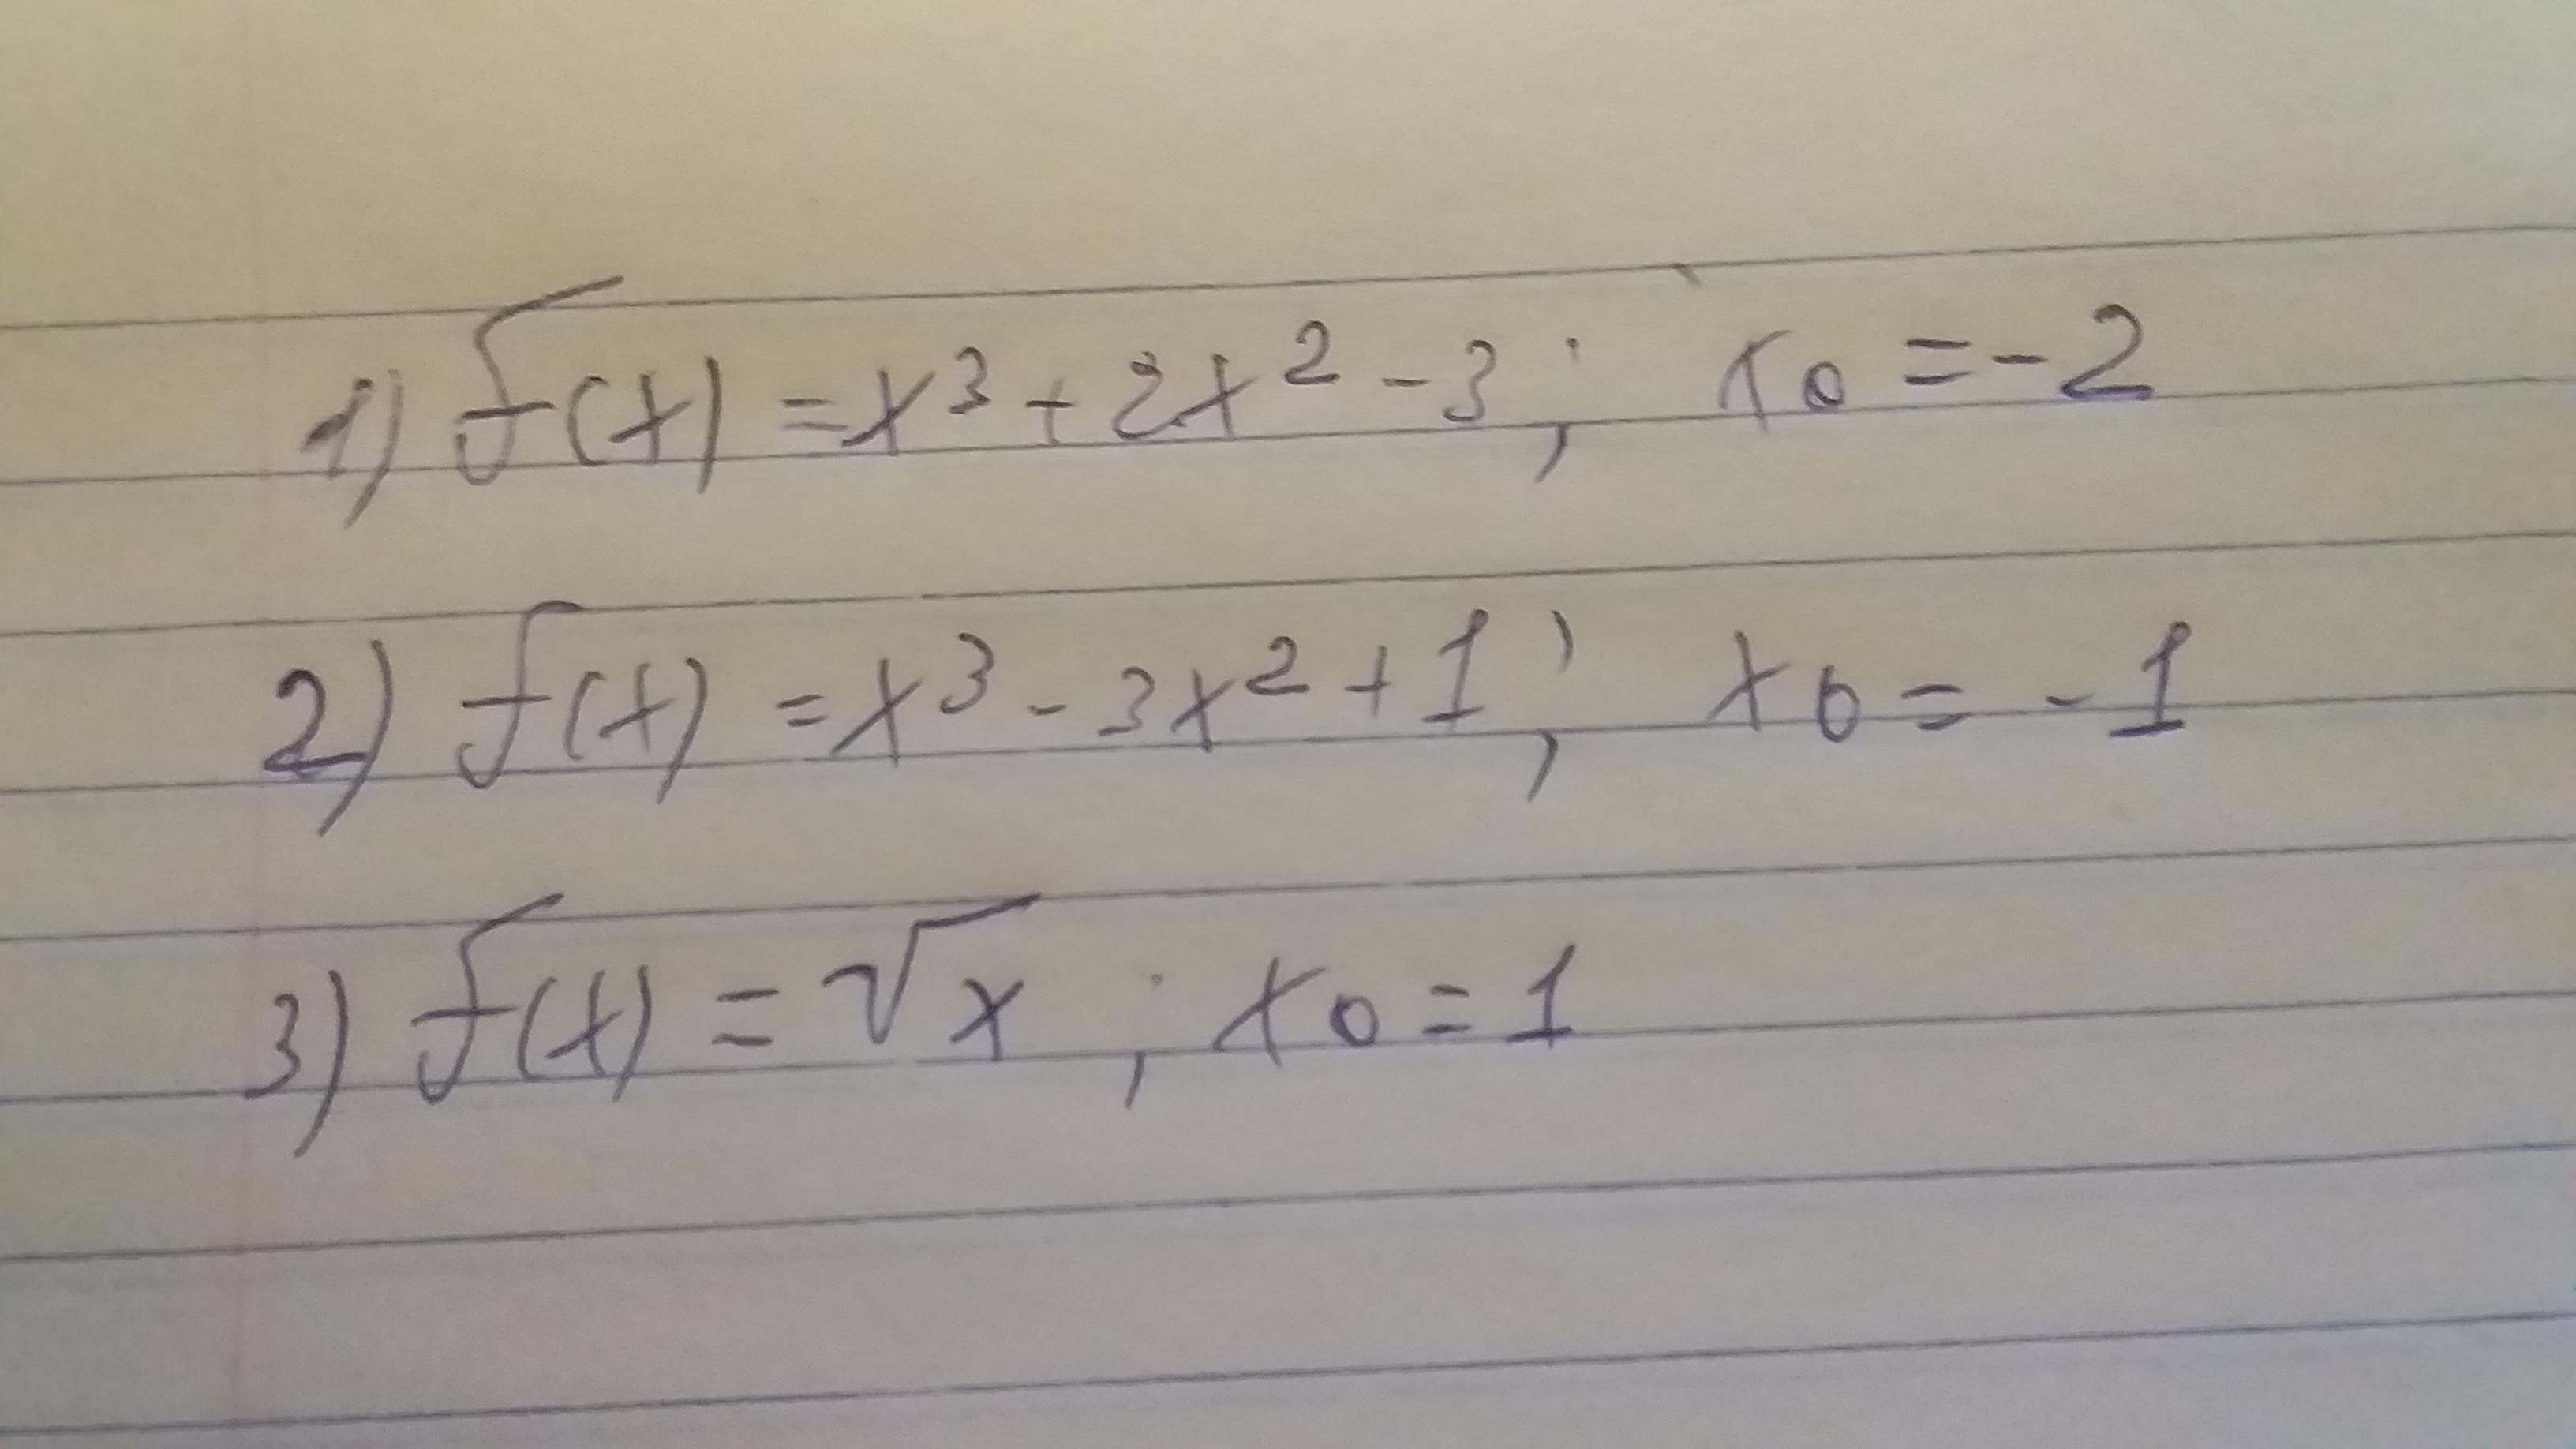 1) f(x) = x³ + 2x² - 3; x₀ = -2
2) f(x) = x³ - 3x² + 1; x₀ = -1
3) f(x) = √x ; x₀ = 1